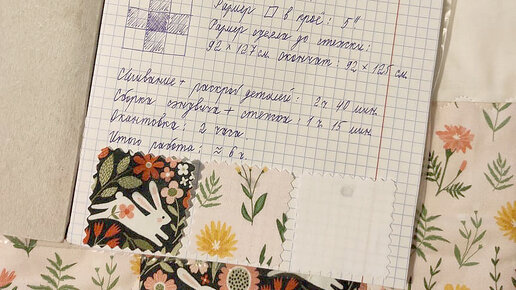 Размер □ в крое: 5"
Размер одеяла до стежки:
92 × 127 см окончат: 92 × 125 см
Сшивание + раскрой деталей: 2ч 40 мин.
Сборка сэндвича + стежка: 1 ч 15 мин
Окантовка: 2 часа
Итого работа: ≈ 6 ч